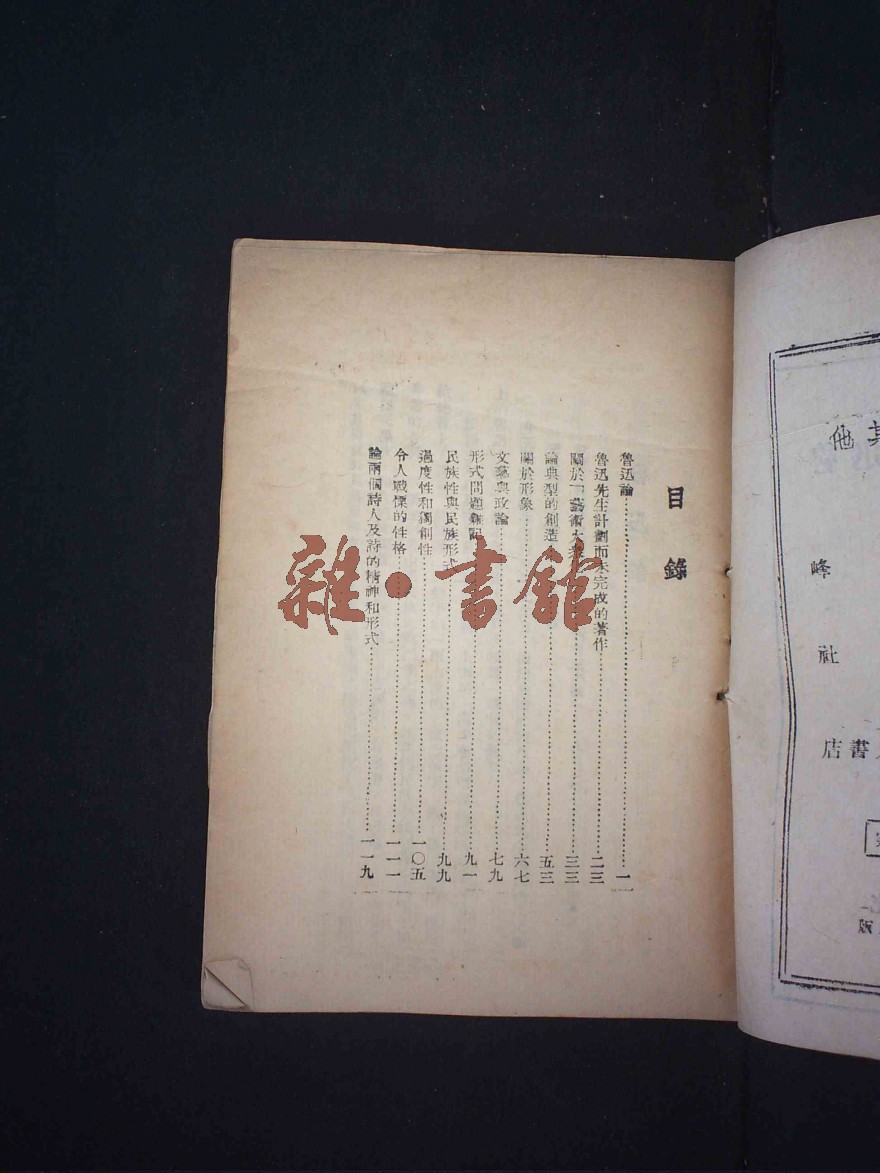 目錄
魯迅論……一
魯迅先生計劃而未完成的著作……二三
關於「藝術大眾……三三
論典型的創造……五三
關於形象……六七
文藝與政論……七九
形式問題雜記……九一
民族性與民族形式……九九
過度性和獨創性……一〇五
令人戰慄的性格……一一一
論兩個詩人及詩的精神和形式……一一九
雜·書館
其他
峰
社
書店
版